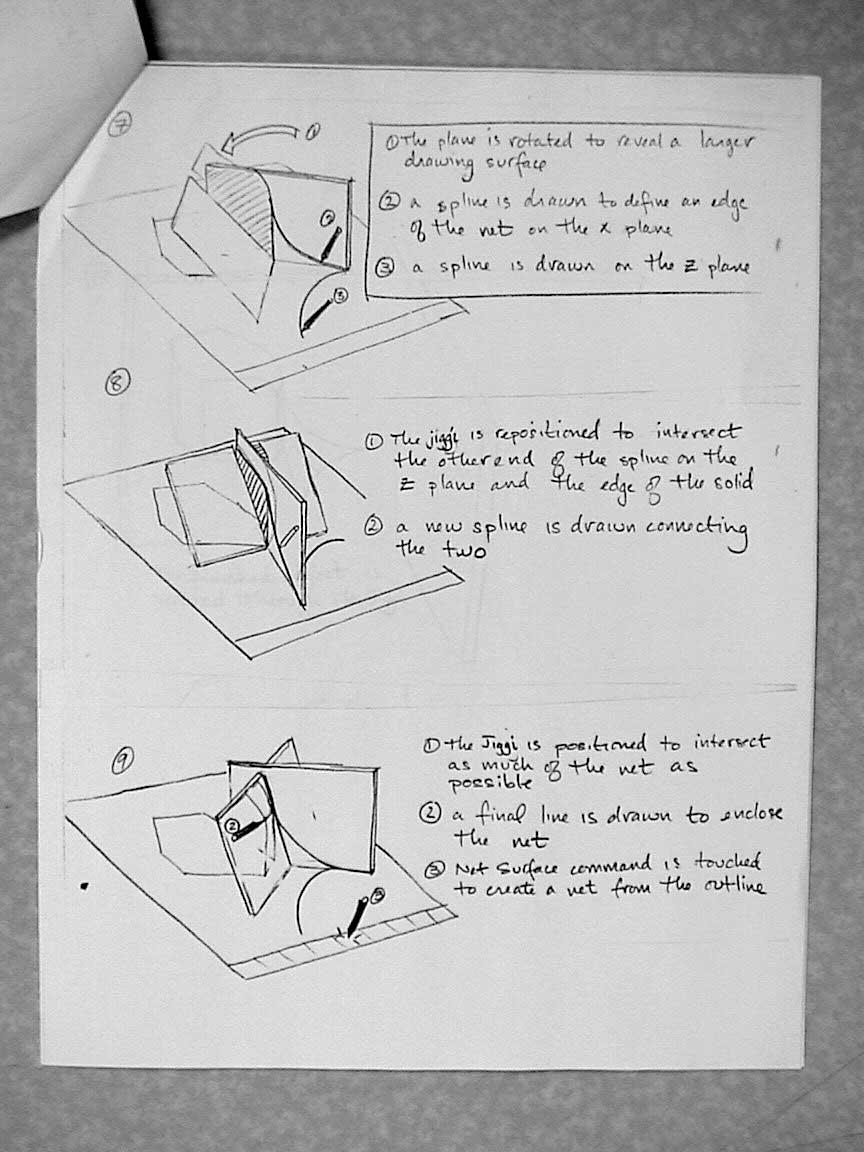 ⑦
①
② 
③
① The plane is rotated to reveal a larger
drawing surface
② a spline is drawn to define an edge
of the net on the x plane
③ a spline is drawn on the z plane
⑧
① The jiggi is repositioned to intersect
the other end of the spline on the
z plane and the edge of the solid
② a new spline is drawn connecting
the two
⑨
②
③
① the Jiggi is positioned to intersect
as much of the net as
possible
② a final line is drawn to enclose
the net
③ Net Surface command is touched
to create a net from the outline